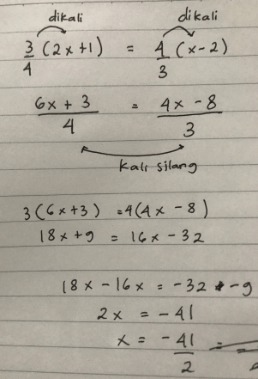 dikali dikali
3/4 (2x+1) = 4/3 (x-2)
6x + 3 / 4 = 4x - 8 / 3
Kali silang
3(6x+3) = 4(4x - 8)
18x + 9 = 16x - 32
18x - 16x = -32 - 9
2x = -41
x = -41/2